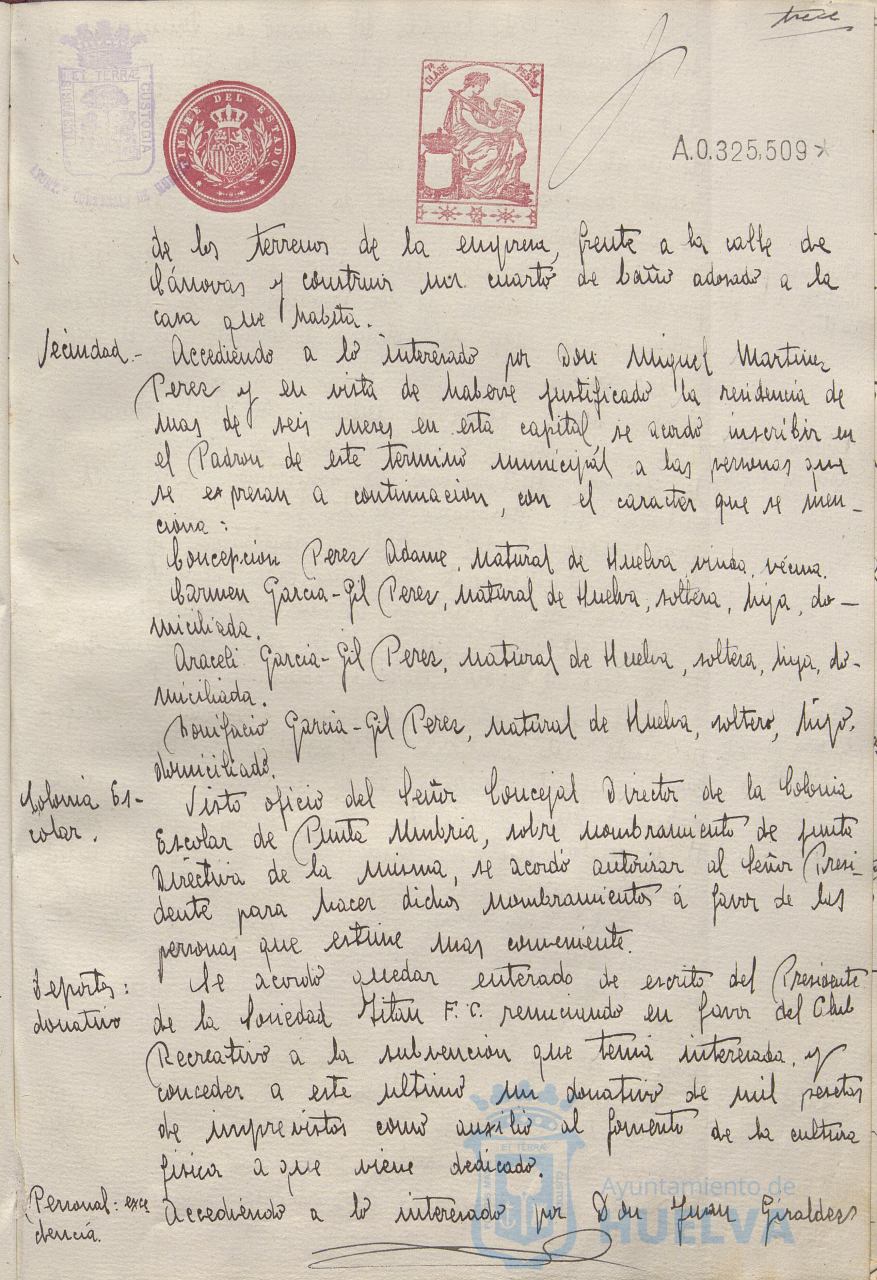 trece
ET TERRÆ
CUSTODIA
TIMBRE DEL ESTADO
7ª CLASE
A.0.325,509
de los terrenos de la empresa, frente a la calle de
Cánovas y construir un cuarto de baño adosado a la
casa que habita.
Vecindad.- Accediendo a lo interesado por Don Miguel Martinez
Perez y en vista de haberse justificado la residencia de
mas de seis meses en esta capital, se acordó inscribir en
el Padron de este termino municipal a las personas que
se expresan a continuacion, con el caracter que se men-
ciona:
Concepcion Perez Adame, natural de Huelva, viuda, vecina.
Carmen Garcia-Gil Perez, natural de Huelva, soltera, hija, do-
miciliada.
Araceli Garcia-Gil Perez, natural de Huelva, soltera, hija, do-
miciliada.
Bonifacio Garcia-Gil Perez, natural de Huelva, soltero, hijo,
domiciliado.
Colonia Es-
colar.
Visto oficio del Señor Concejal Director de la Colonia
Escolar de Punta Umbria, sobre nombramiento de junta
Directiva de la misma, se acordó autorizar al Señor Presi-
dente para hacer dichos nombramientos á favor de las
personas que estime mas conveniente.
Deportes:
donativo
Se acordó quedar enterado de escrito del Presidente
de la Sociedad Titan F.C. renunciando en favor del Club
Recreativo a la subvencion que tenia interesada, y
conceder a este ultimo un donativo de mil pesetas
de imprevistos como auxilio al fomento de la cultura
fisica a que viene dedicado.
Personal: exce
dencia.
Accediendo a lo interesado por Don Juan Giraldez
Ayuntamiento de
HUELVA